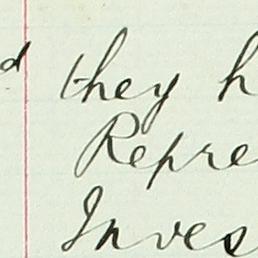 d they h
Repre
Inves